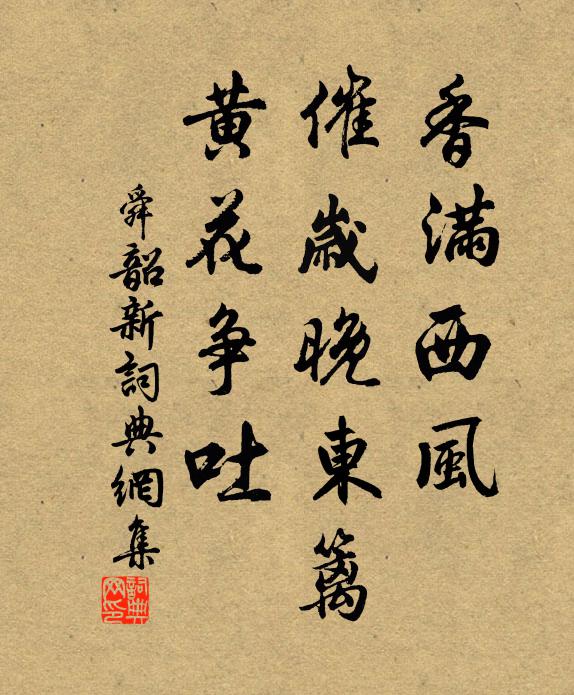 香滿西風
催歲晚東籬
黃花爭吐
舜韶新詞典網集
詞典
网印